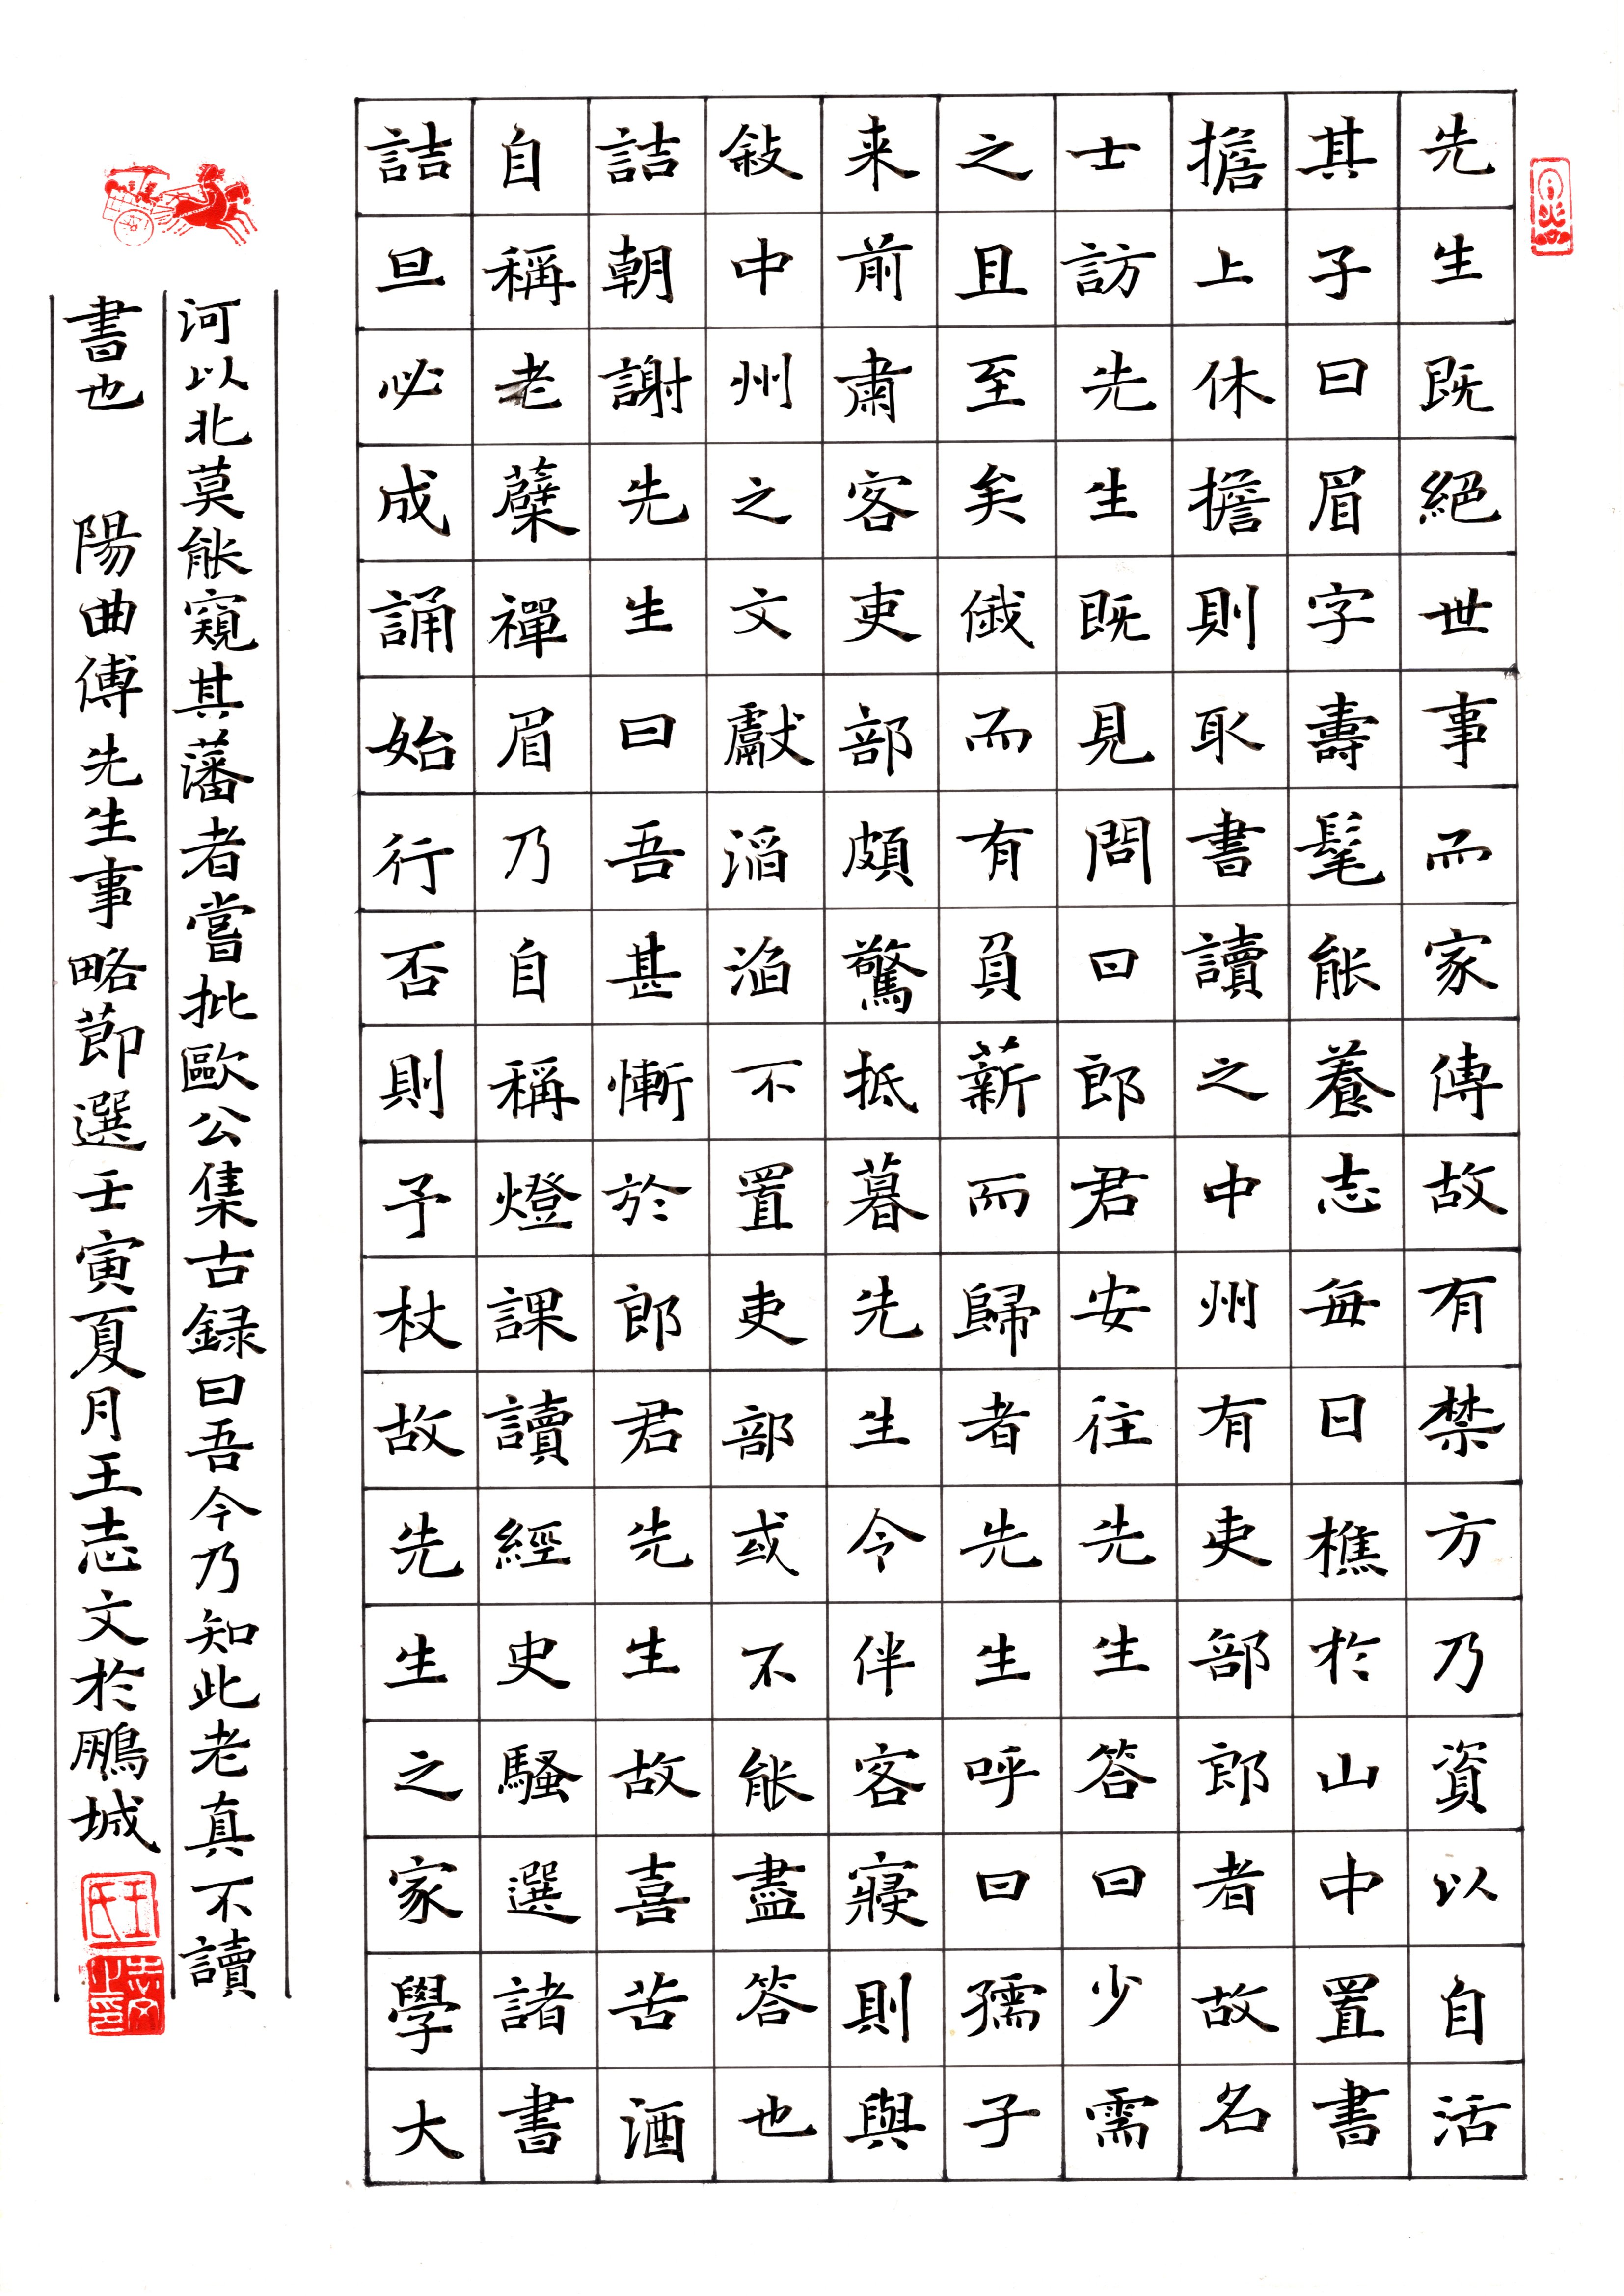 先生既絕世事而家傳故有禁方乃資以自活
其子曰眉字壽髦能養志每日樵於山中置書
擔上休擔則取書讀之中州有吏部郎者故名
士訪先生既見問曰郎君安往先生答曰少需
之且至矣俄而有負薪而歸者先生呼曰孺子
来前肅客吏部頗驚抵暮先生令伴客寢則與
敍中州之文獻滔滔不置吏部或不能盡答也
詰朝謝先生曰吾甚慚於郎君先生故喜苦酒
自稱老蘗禪眉乃自稱燈課讀經史騷選諸書
詰旦必成誦始行否則予杖故先生之家學大
河以北莫能窺其藩者嘗批歐公集古録曰吾今乃知此老真不讀
書也 陽曲傅先生事略節選壬寅夏月王志文於鵬城
王氏
志文之印